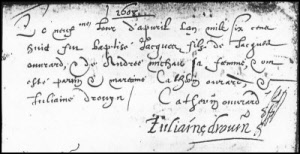 1608
Le neuf me Jour d'apvril l'an mil six cens
huit fut baptisé Jacques filz de Jacques
ouvrard, & de Andree sa femme, & ont
esté parin & maraine Cathorin ouvrard, &
Julliaine drouyn Cathorin ouvrard
Julliaine drouin